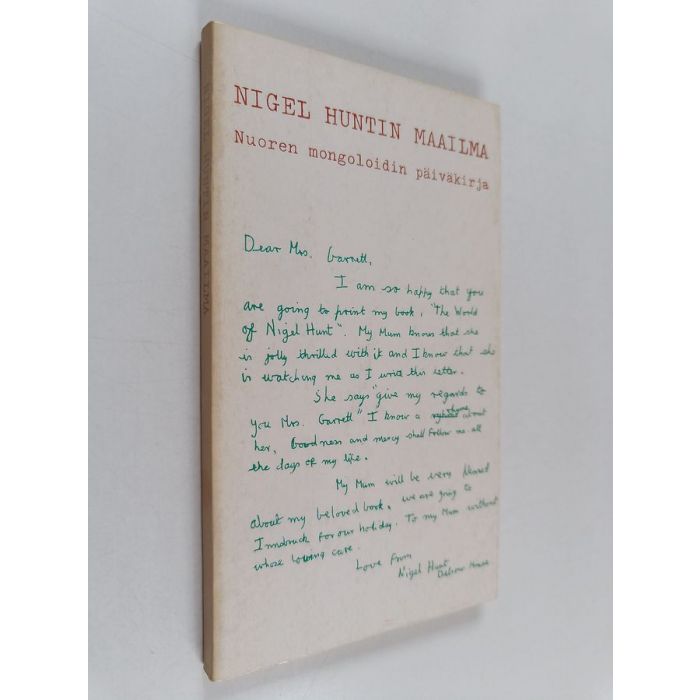 NIGEL HUNTIN MAAILMA
Nuoren mongoloidin päiväkirja
Dear Mrs. Garrett,
I am so happy that you
are going to print my book, "The World
of Nigel Hunt". My Mum knows that she
is jolly thrilled with it and I know that she
is watching me as I write this letter.
She says "give my regards to
you Mrs. Garrett" I know a rhyme about
her, Goodness and mercy shall follow me all
the days of my life.
My Mum will be very pleased
about my beloved book, we are going to
Innsbruck for our holiday. To my Mum without
whose loving care.
Love From
Nigel Hunt
House
MAAILMA